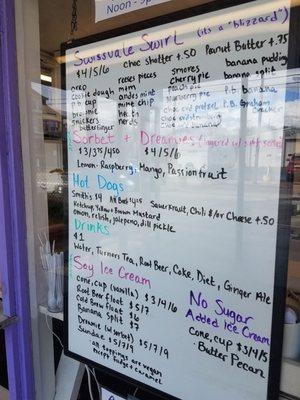 Noon - 5
Swissvale Swirl (its a "blizzard")
$4/5/6 choc shatter +.50 Peanut Butter +.75
oreo
cookie dough
p.b. cup
brownie
snickers
butterfinger
reeses pieces
m+m
andes mint
mint chip
heath
nerds
smores
cherry pie
peach pie
blueberry pie
banana pudding
banana split
p.b. banana
Sorbet + Dreamies (layered w/ soft serve)
$3/3.75/4.50 $4/5/6
Lemon, Raspberry, Mango, Passionfruit
Hot Dogs
Smith's $4 All Beef $4.75 Sauerkraut, Chili &/or Cheese +.50
Ketchup, Yellow + Brown Mustard
onion, relish, jalepeno, dill pickle
Drinks
$1
Water, Turners Tea, Root Beer, Coke, Diet, Ginger Ale
Soy Ice Cream
cone, cup (vanilla) $3/4/6
Root Beer float $5/7
Cold Brew float $6
Banana split $7
Dreamie (w/ sorbet) $5/7/9
Sundae $5/7/9
- all toppings are vegan
except fudge + caramel
No Sugar
Added Ice Cream
cone, cup $3/4/5
- Butter Pecan